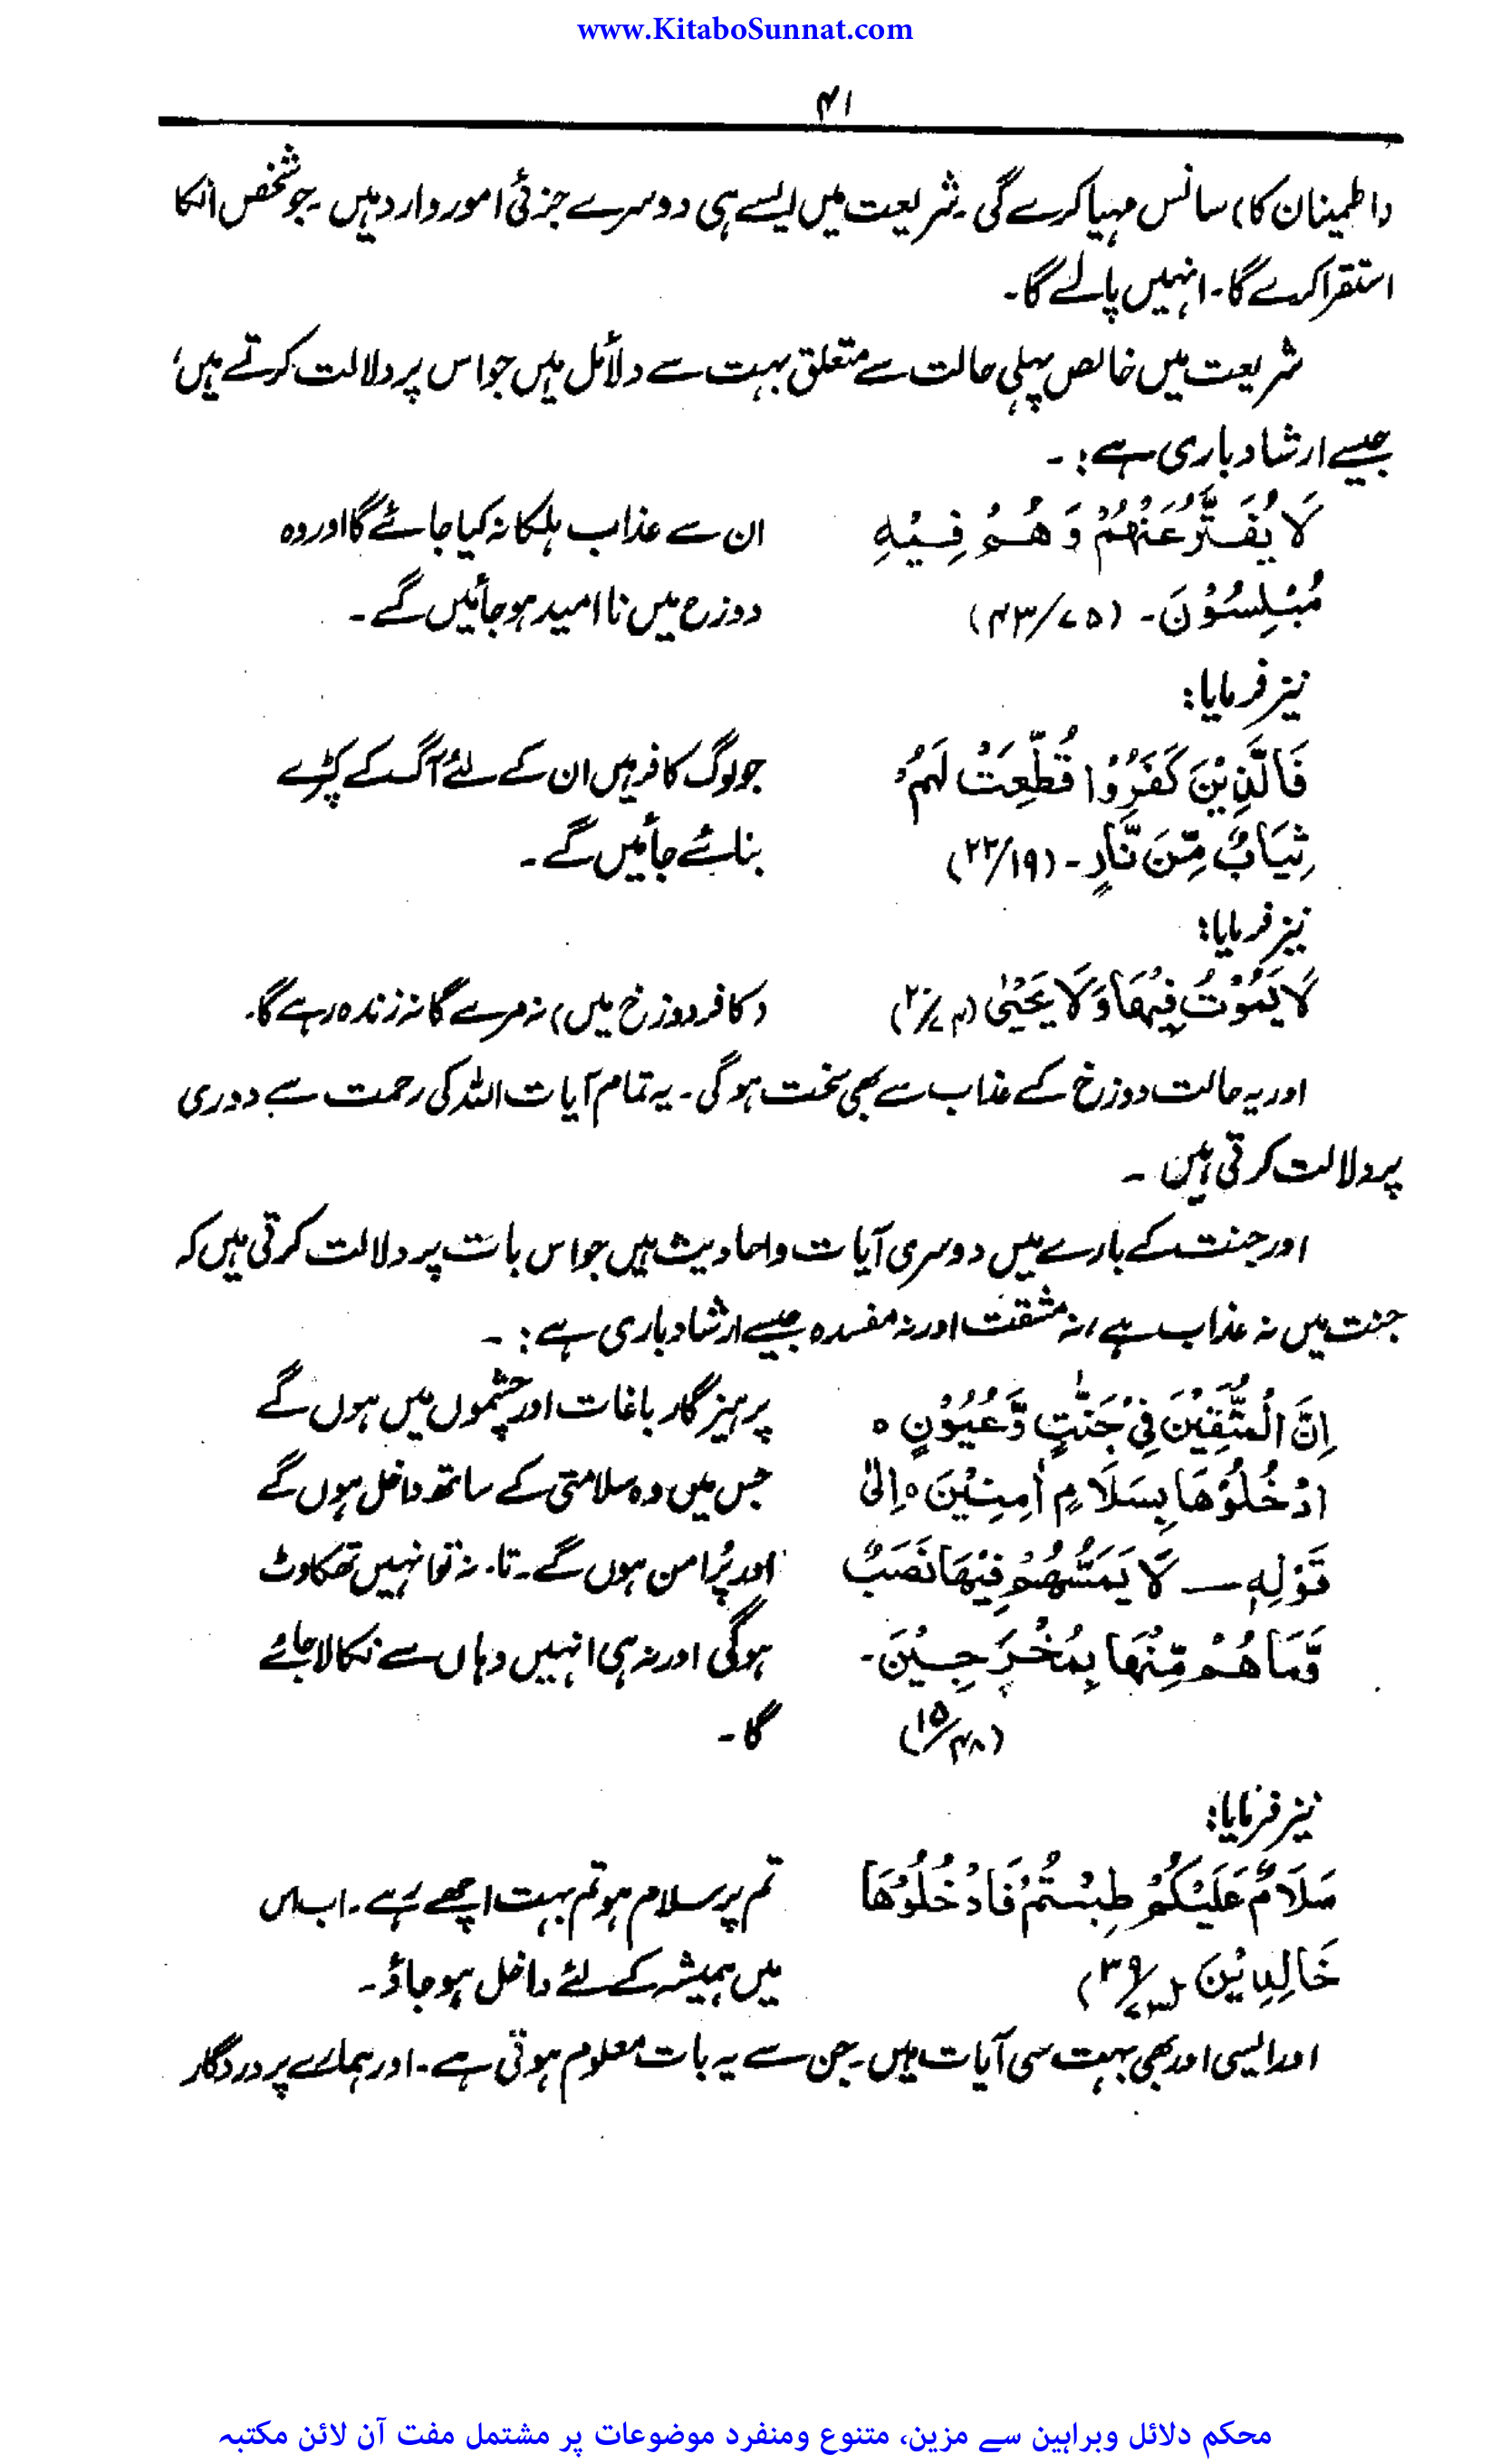 www.KitaboSunnat.com
۴۱
(اطمینان کا) سانس مہیا کرے گی۔ شریعت میں ایسے ہی دوسرے جزئی امور وارد ہیں۔ جو شخص انکا
استقرا کرے گا۔ انہیں پالے گا۔
شریعت میں خالص پہلی حالت سے متعلق بہت سے دلائل ہیں جو اس پر دلالت کرتے ہیں،
جیسے ارشاد باری ہے:۔
لَا يُفَتَّرُ عَنْهُمْ وَ هُمْ فِيْهِ ان سے عذاب ہلکا نہ کیا جائے گا اور وہ
مُبْلِسُوْنَ۔ (۴۳/۷۵) دوزخ میں نا امید ہو جائیں گے۔
نیز فرمایا:
فَالَّذِيْنَ كَفَرُوْا قُطِّعَتْ لَهُمْ جو لوگ کافر ہیں ان کے لئے آگ کے کپڑے
ثِيَابٌ مِّنَ نَّارٍ۔ (۲۲/۱۹) بنائے جائیں گے۔
نیز فرمایا:
لَا يَمُوْتُ فِيْهَا وَلَا يَحْيٰى (۲۰/۷۴) (کافر دوزخ میں) نہ مرے گا نہ زندہ رہے گا۔
اور یہ حالت دوزخ کے عذاب سے بھی سخت ہو گی۔ یہ تمام آیات اللہ کی رحمت سے دوری
پر دلالت کرتی ہیں ۔
اور جنت کے بارے میں دوسری آیات و احادیث ہیں جو اس بات پر دلالت کرتی ہیں کہ
جنت میں نہ عذاب ہے، نہ مشقت اور نہ مفسدہ جیسے ارشاد باری ہے:۔
اِنَّ الْمُتَّقِيْنَ فِيْ جَنّٰتٍ وَّعُيُوْنٍ ه پرہیز گار باغات اور چشموں میں ہوں گے
ادْخُلُوْهَا بِسَلَامٍ اٰمِنِيْنَ ه اِلىٰ جس میں وہ سلامتی کے ساتھ داخل ہوں گے
قَوْلِهٖ — لَا يَمَسُّهُمْ فِيْهَا نَصَبٌ اور پُرامن ہوں گے۔ تا۔ نہ تو انہیں تھکاوٹ
وَّمَا هُمْ مِّنْهَا بِمُخْرَجِيْنَ۔ ہو گی اور نہ ہی انہیں وہاں سے نکالا جائے
(۱۵/۴۸) گا۔
نیز فرمایا:
سَلَامٌ عَلَيْكُمْ طِبْتُمْ فَادْخُلُوْهَا تم پر سلام ہو تم بہت اچھے رہے۔ اب اس
خَالِدِيْنَ (۳۹/۷۳) میں ہمیشہ کے لئے داخل ہو جاؤ۔
اور ایسی اور بھی بہت سی آیات ہیں۔ جن سے یہ بات معلوم ہوتی ہے۔ اور ہمارے پروردگار
محکم دلائل وبراہین سے مزین، متنوع ومنفرد موضوعات پر مشتمل مفت آن لائن مکتبہ